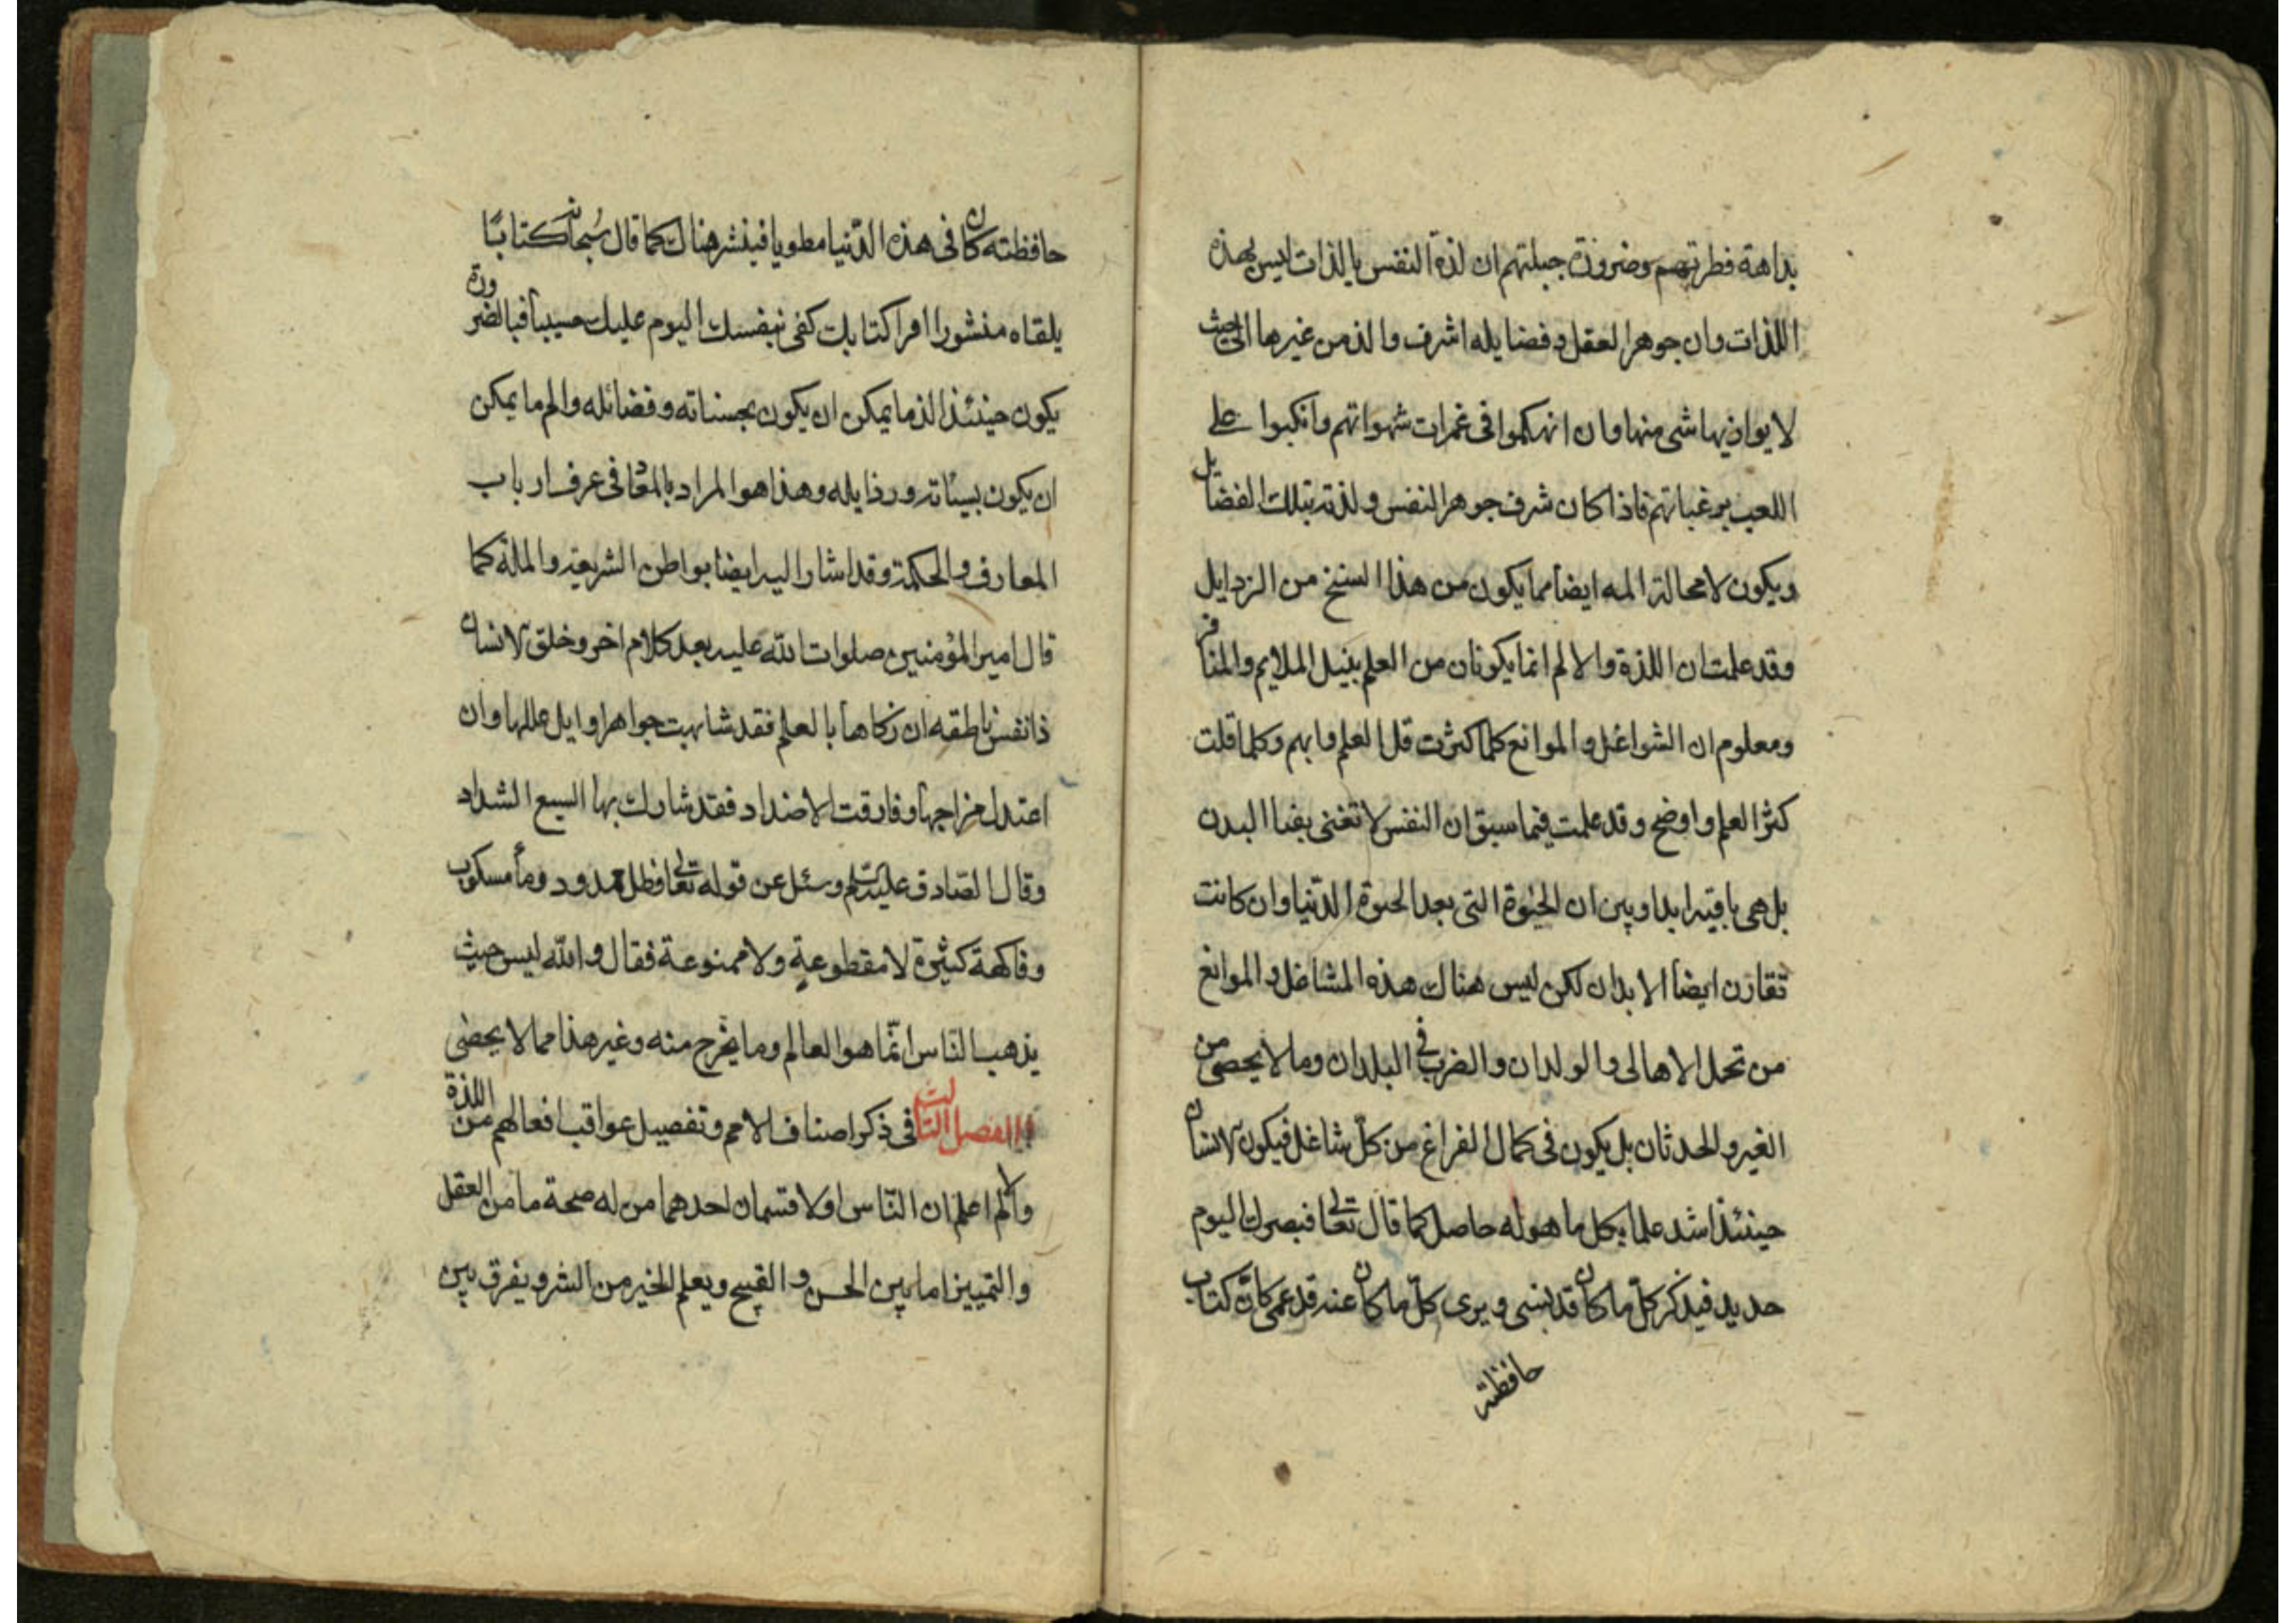 بداهة فطرتهم وضرورة جبلتهم ان لذة النفس بالذات ليس بهذه
اللذات وان جوهر العقل وفضايله اشرف والذ من غيرها الى حيث
لا يوازيها شى منها وان انهمكوا فى غمرات شهواتهم وانكبوا على
اللعب برغباتهم فاذا كان شرف جوهر النفس ولذته بتلك الفضايل
ويكون لا محالة المه ايضا مما يكون من هذا السنخ من الرذايل
وقد علمت ان اللذة والالم انما يكونان من العلم بنيل الملايم والمنافر
ومعلوم ان الشواغل والموانع كلما كثرت قل العلم وابهم وكلما قلت
كثر العلم واوضح وقد علمت فيما سبق ان النفس لا تفنى بفنا البدن
بل هى باقية ابدا وبين ان الحيوة التى بعد الحيوة الدنيا وان كانت
تقارن ايضا الابدان لكن ليس هناك هذه المشاغل والموانع
من تحمل الاهالى والولدان والضرب فى البلدان وما لا يحصى من
الغير والحدثان بل يكون فى كمال الفراغ من كل شاغل فيكون الانسان
حينئذ اشد علما بكل ما هو له حاصل كما قال تعالى فبصرك اليوم
حديد فيذكر كلّ ما كان قد نسى ويرى كلّ ما كان عنه قد عمى كانّ كتاب
حافظته
حافظته كان فى هذه الدّنيا مطويا فينشر هناك كما قال سُبحانه كتابًا
يلقاه منشورا اقرا كتابك كفى بنفسك اليوم عليك حسيبا فبالضرورة
يكون حينئذ الذ ما يمكن ان يكون بحسناته وفضائله والم ما يمكن
ان يكون بسيئاته ورذايله وهذا هو المراد بالمعاد فى عرف ارباب
المعارف والحكمة وقد اشار اليه ايضا بواطن الشريعة والملة كما
قال امير المؤمنين صلوات الله عليه بعد كلام اخر وخلق الانسان
ذا نفس ناطقه ان زكاها بالعلم فقد شابهت جواهر اوايل عللها وان
اعتدل مزاجها وفارقت الاضداد فقد شارك بها السبع الشداد
وقال الصّادق عليه السلم وسئل عن قوله تعالى وظل ممدود وما مسكوب
وفاكهة كثيرة لا مقطوعةٍ ولا ممنوعة فقال والله ليس حيث
يذهب النّاس انّما هو العالم وما يخرج منه وغير هذا مما لا يحصى
الفصل الثالث فى ذكر اصناف الامم وتفصيل عواقب افعالهم من اللذة
والالم اعلم ان النّاس اولا قسمان احدهما من له صحة ما من العقل
والتمييز اما بين الحسن والقبيح ويعلم الخير من الشر ويفرق بين